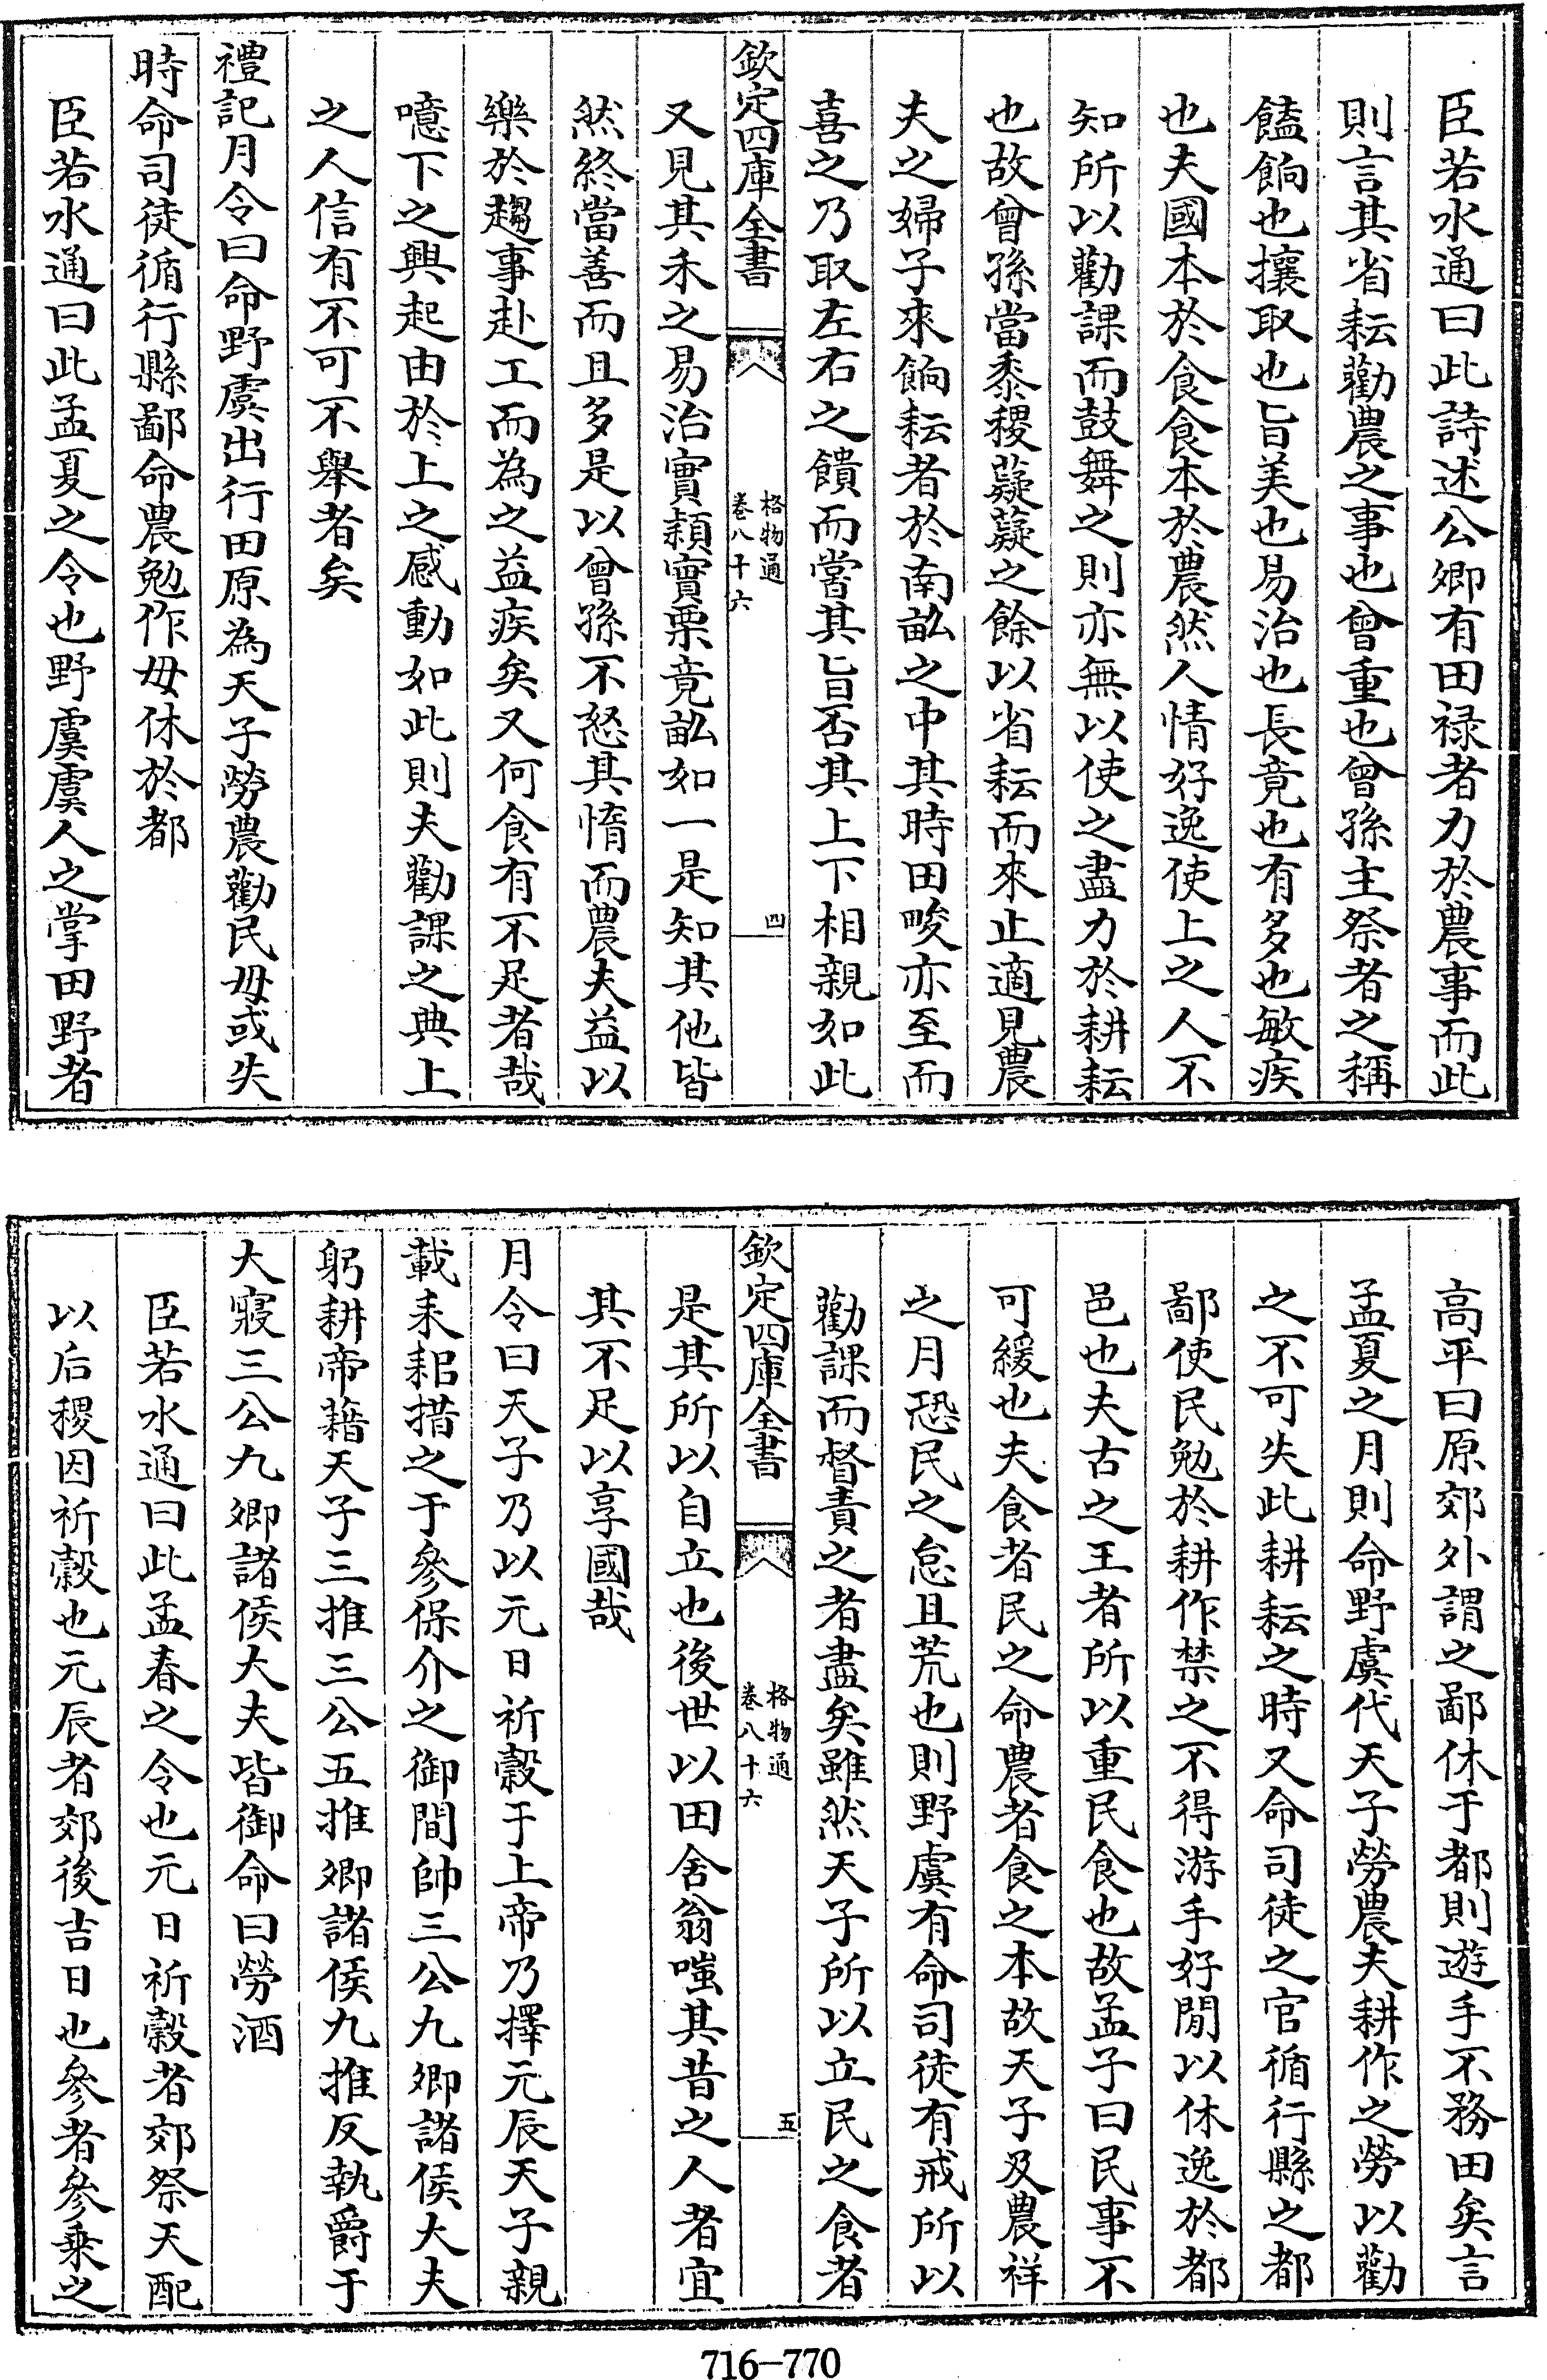 臣若水通曰此詩述公卿有田禄者力於農事而此
則言其省耘勸農之事也曾重也曾孫主祭者之稱
饁餉也攘取也旨美也易治也長竟也有多也敏疾
也夫國本於食食本於農然人情好逸使上之人不
知所以勸課而鼓舞之則亦無以使之盡力於耕耘
也故曾孫當黍稷薿薿之餘以省耘而來止適見農
夫之婦子來餉耘者於南畝之中其時田畯亦至而
喜之乃取左右之饋而嘗其旨否其上下相親如此
欽定四庫全書
格物通
卷八十六
四
又見其禾之易治實穎實栗竟畝如一是知其他皆
然終當善而且多是以曾孫不怒其惰而農夫益以
樂於趨事赴工而為之益疾矣又何食有不足者哉
噫下之興起由於上之感動如此則夫勸課之典上
之人信有不可不舉者矣
禮記月令曰命野虞出行田原為天子勞農勸民毋或失
時命司徒循行縣鄙命農勉作毋休於都
臣若水通曰此孟夏之令也野虞虞人之掌田野者
高平曰原郊外謂之鄙休于都則遊手不務田矣言
孟夏之月則命野虞代天子勞農夫耕作之勞以勸
之不可失此耕耘之時又命司徒之官循行縣之都
鄙使民勉於耕作禁之不得游手好閒以休逸於都
邑也夫古之王者所以重民食也故孟子曰民事不
可緩也夫食者民之命農者食之本故天子及農祥
之月恐民之怠且荒也則野虞有命司徒有戒所以
勸課而督責之者盡矣雖然天子所以立民之食者
欽定四庫全書
格物通
卷八十六
五
是其所以自立也後世以田舍翁嗤其昔之人者宜
其不足以享國哉
月令曰天子乃以元日祈穀于上帝乃擇元辰天子親
載耒耜措之于參保介之御間帥三公九卿諸侯大夫
躬耕帝藉天子三推三公五推卿諸侯九推反執爵于
大寢三公九卿諸侯大夫皆御命曰勞酒
臣若水通曰此孟春之令也元日祈穀者郊祭天配
以后稷因祈穀也元辰者郊後吉日也參者參乘之
716-770